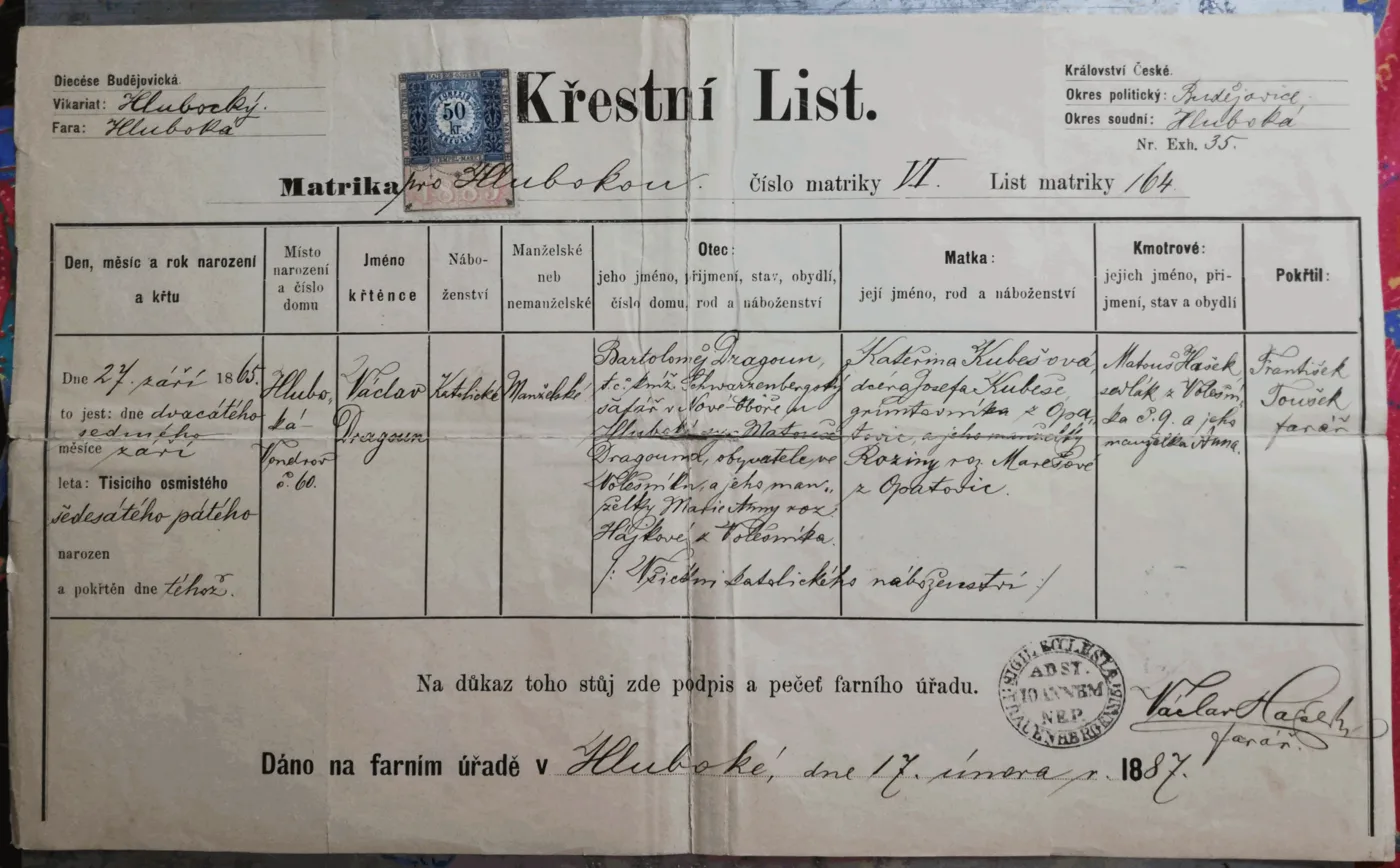 Diecése Budějovická.
Vikariat: Hlubocký.
Fara: Hluboká
50
kr.
STEMPEL-MARKE
1885
Křestní List.
Království České.
Okres politický: Budějovice,
Okres soudní: Hluboká
Nr. Exh. 35.
Matrika pro Hlubokou. Číslo matriky VI. List matriky 164.
Den, měsíc a rok narození
a křtu
Místo
narození
a číslo
domu
Jméno
křtěnce
Nábo-
ženství
Manželské
neb
nemanželské
Otec:
jeho jméno, přijmení, stav, obydlí,
číslo domu, rod a náboženství
Matka:
její jméno, rod a náboženství
Kmotrové:
jejich jméno, při-
jmení, stav a obydlí
Pokřtil:
Dne 27. září 1865.
to jest: dne dvacátého
sedmého
měsíce září
leta: Tisícího osmistého
šedesátého pátého
narozen
a pokřtěn dne téhož.
Hlubo-
ká-
Vondrov
č. 60.
Václav
Dragoun
Katolické
Manželské
Bartoloměj Dragoun,
kníž. Schwarzenbergský
šafář v Nové Oboře u
Hluboké, syn Matouše
Dragouna, obyvatele ve
Volešníku, a jeho man-
želky Marie Anny roz.
Hájkové z Volešníka.
Kateřina Kubešová
dcera Josefa Kubeše,
gruntovníka z Opa-
tovic, a jeho manželky
Roziny roz. Marešové
z Opatovic.
/: Všichni katolického náboženství :/
Matouš Hašek
sedlák z Volešní-
ka č. 9. a jeho
manželka Anna.
František
Toušek
farář
Na důkaz toho stůj zde podpis a pečeť farního úřadu.
SIGIL. ECCLESIAE
AD ST.
IOANNEM
NEP.
Václav Hašek
farář.
Dáno na farním úřadě v Hluboké, dne 17. února r. 1887.